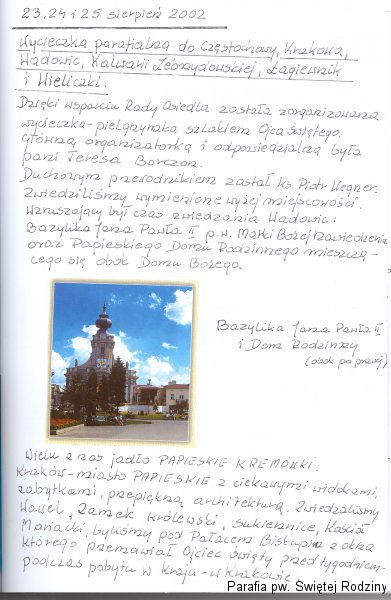 23, 24 i 25 sierpień 2002
Wycieczka parafialna do Częstochowy, Krakowa,
Wadowic, Kalwarii Zebrzydowskiej, Łagiewnik
i Wieliczki.
Dzięki wsparciu Rady Osiedla została zorganizowana
wycieczka-pielgrzymka szlakiem Ojca Świętego.
Główną organizatorką i odpowiedzialną była
pani Teresa Borczon.
Duchowym przewodnikiem został ks. Piotr Wegner.
Zwiedziliśmy wymienione wyżej miejscowości.
Wzruszający był czas zwiedzania Wadowic:
Bazylika Jana Pawła II p.w. Matki Bożej
oraz Papieskiego Domu Rodzinnego mieszczą-
cego się obok Domu Bożego.
Bazylika Jana Pawła II
i Dom Rodzinny
(obok po prawej)
Wielu z nas jadło PAPIESKIE KREMÓWKI.
Kraków-miasto PAPIESKIE z ciekawymi widokami,
zabytkami, przepiękną architekturą. Zwiedzaliśmy
Wawel, Zamek Królewski, Sukiennice, Kościół
Mariacki, byliśmy pod Pałacem Biskupim z okna
którego przemawiał Ojciec Święty przed tygodniem-
podczas pobytu w kraju-w Krakowie
Parafia pw. Świętej Rodziny